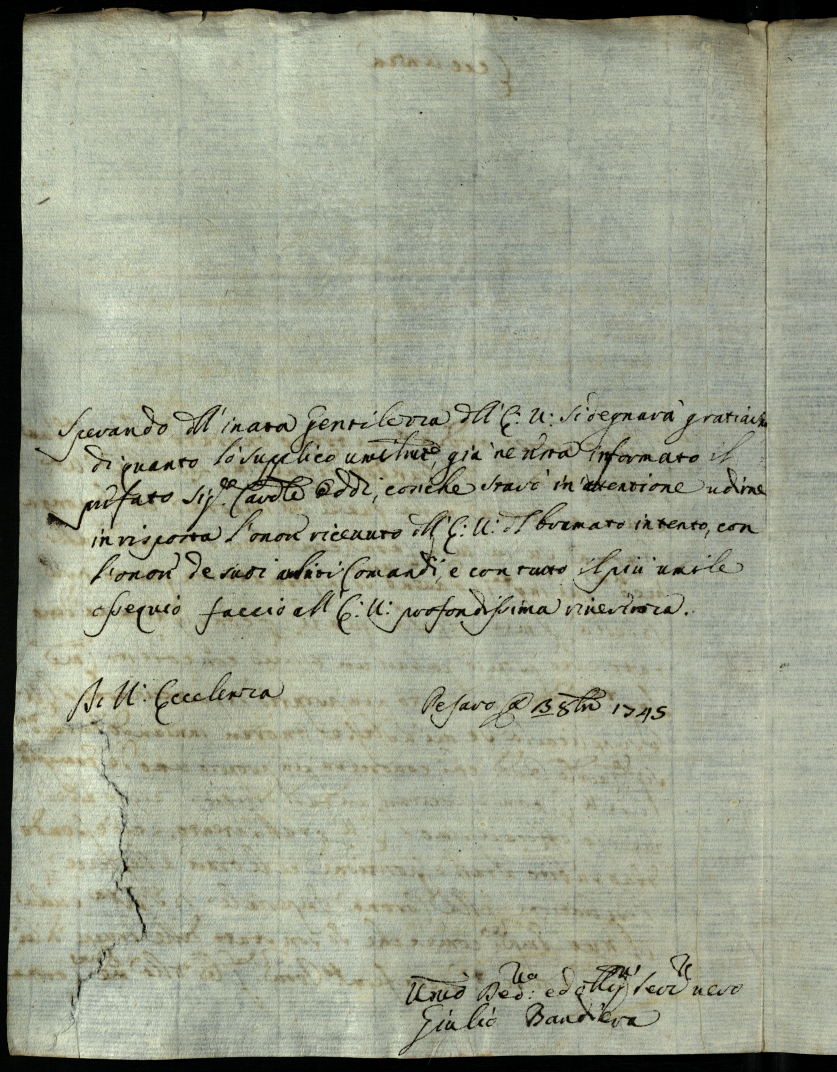 Sperando dll' inata Gentilezza dll' E: V: si degnarà gratiarmi
di quanto lo supplico umilmte, già ne resta informato il
prefato Sigre Cavdle Oddi, con che starò in attentione udirne
in risposta l'onor ricevuto dll' E: V: dl bramato intento, con
l'onor de suoi ambiti Comandi, e con tutto il più umile
ossequio faccio all' E: V: profondissima riverenza.
Di V: Eccellenza
Pesaro @ 13 8bre 1745
Umo Devo: ed Obbmo Servre vero
Giulio Bandiera